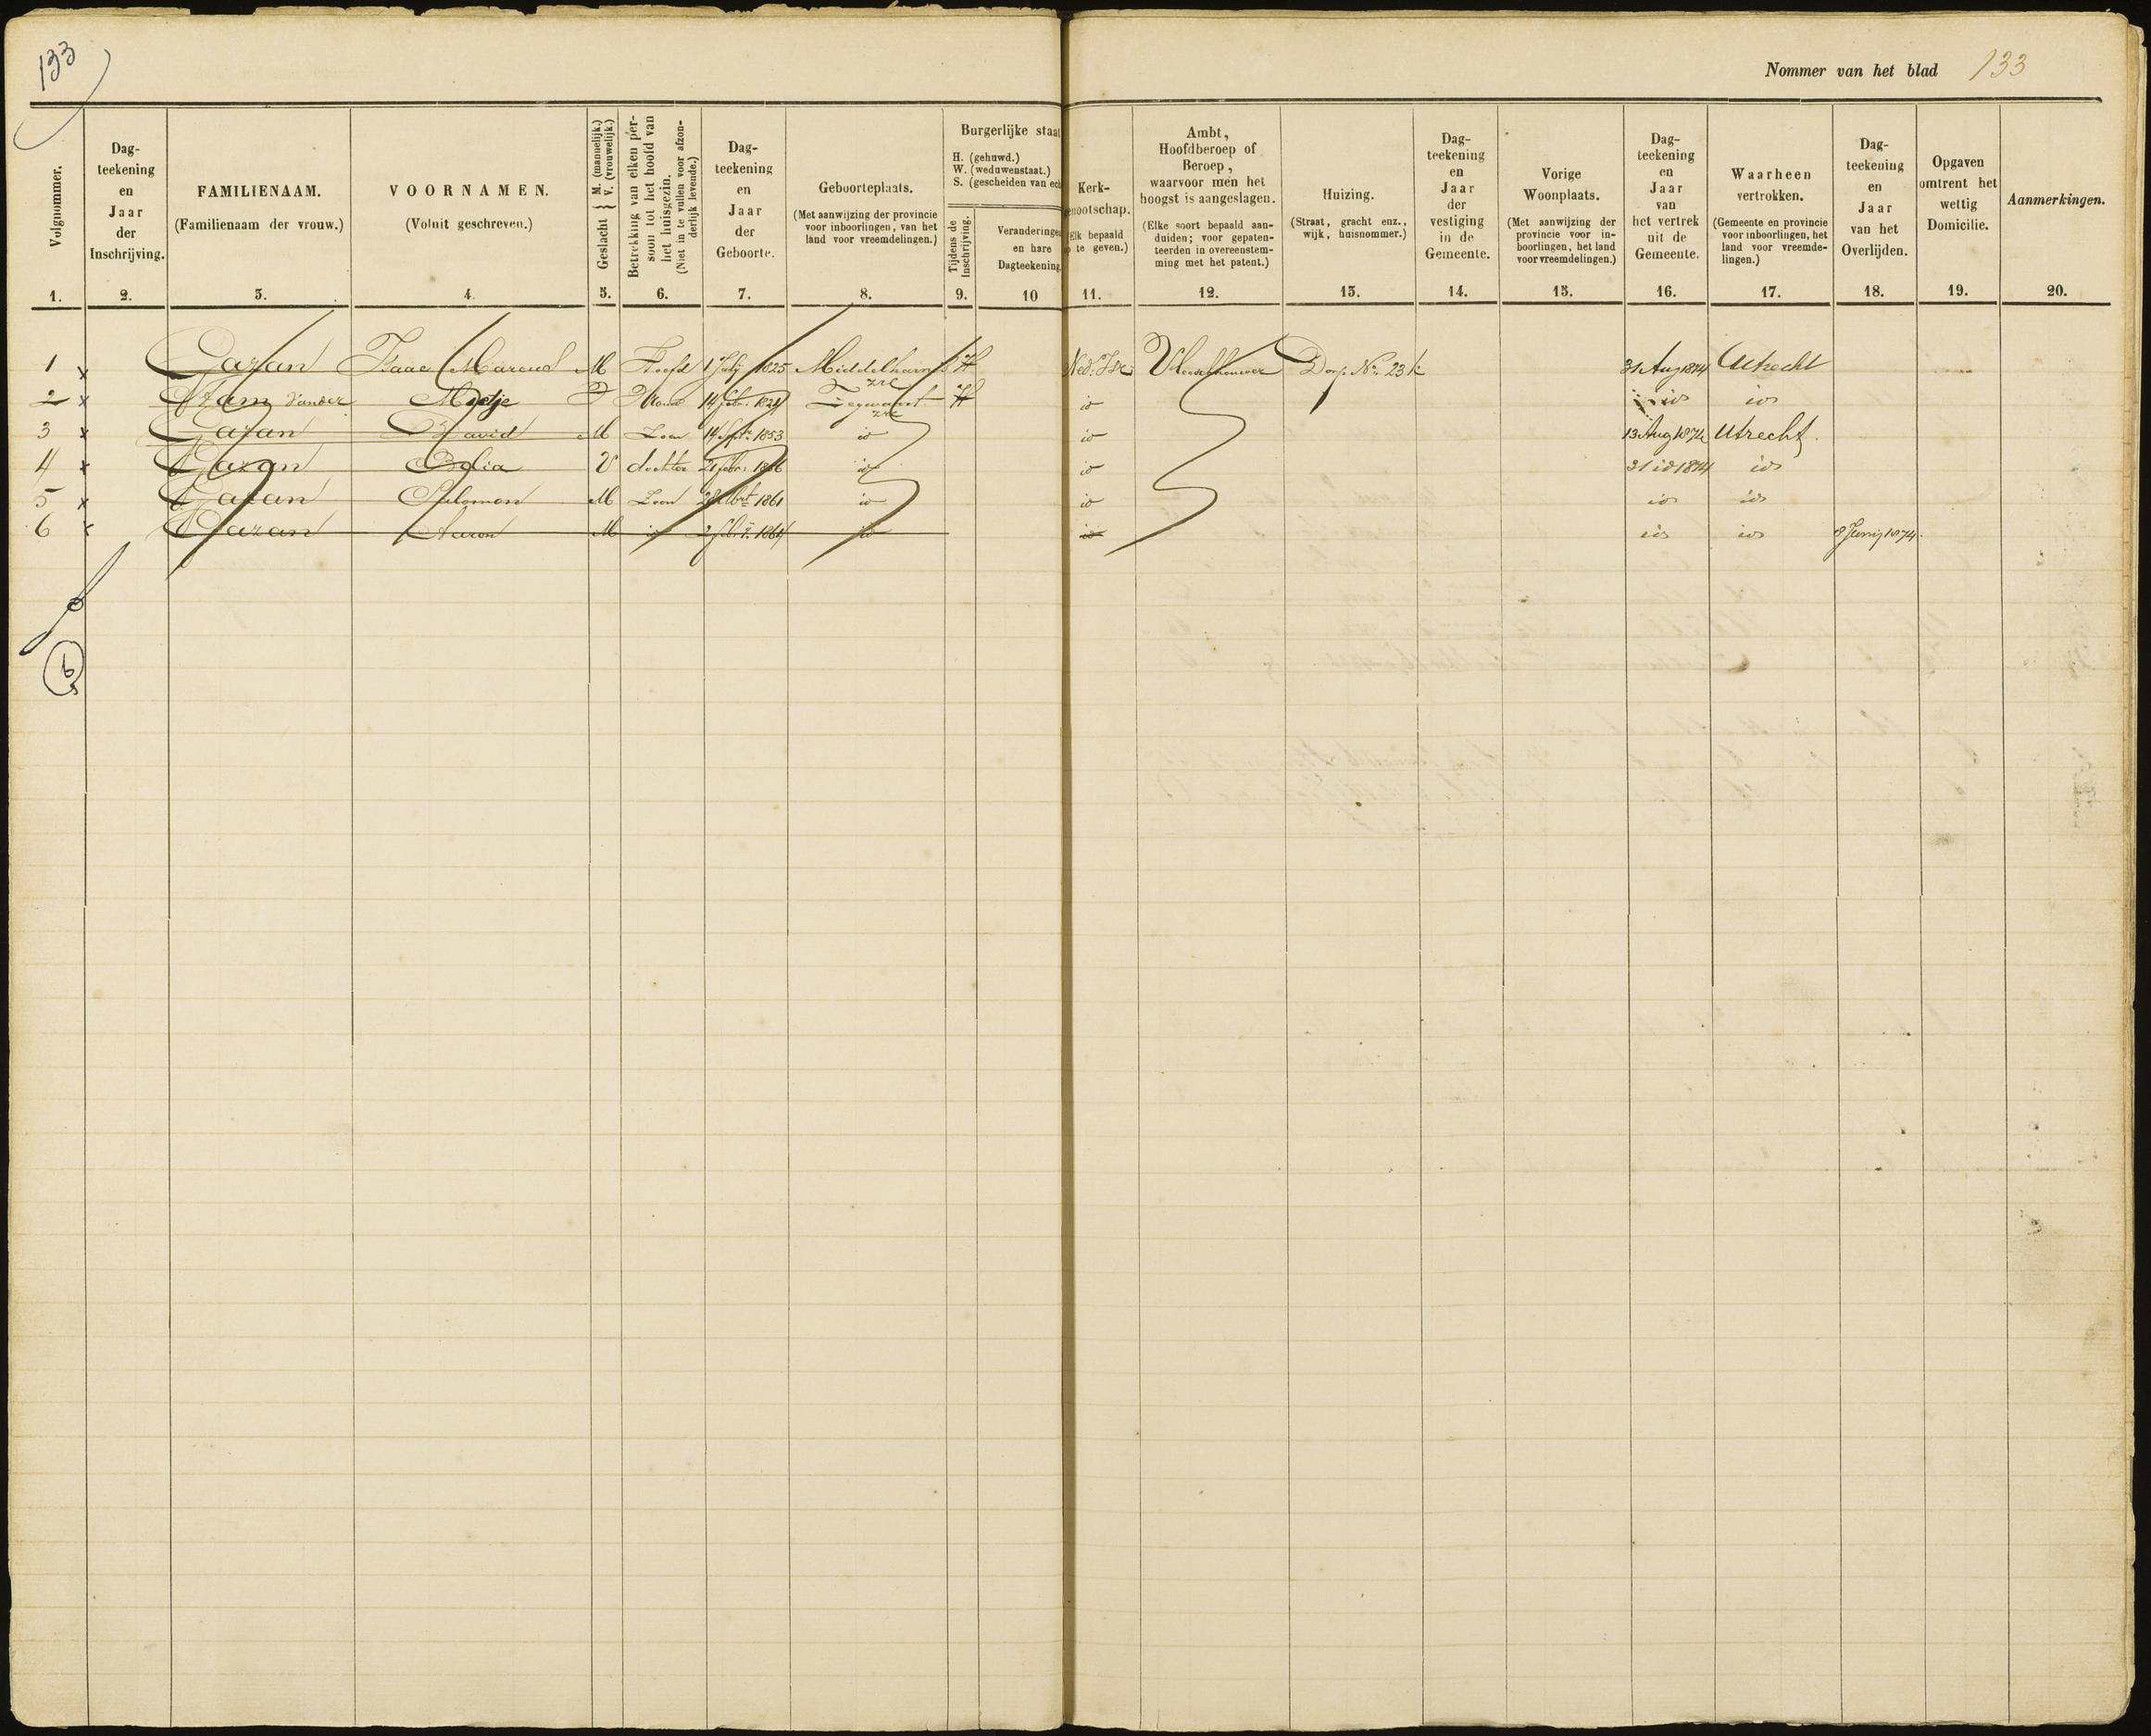 133
Nommer van het blad 133
Volgnommer.
1.
Dag-
teekening
en
Jaar
der
Inschrijving.
2.
FAMILIENAAM.
(Familienaam der vrouw.)
3.
VOORNAMEN.
(Voluit geschreven.)
4.
Geslacht { M. (mannelijk.)
V. (vrouwelijk.)
5.
Betrekking van elken per-
soon tot het hoofd van
het huisgezin.
(Niet in te vullen voor afzon-
derlijk levende.)
6.
Dag-
teekening
en
Jaar
der
Geboorte.
7.
Geboorteplaats.
(Met aanwijzing der provincie
voor inboorlingen, van het
land voor vreemdelingen.)
8.
Burgerlijke staat
H. (gehuwd.)
W. (weduwenstaat.)
S. (gescheiden van ech
Tijdens de
Inschrijving.
9.
Veranderingen
en hare
Dagteekening
10
Kerk-
genootschap.
(Elk bepaald
op te geven.)
11.
Ambt,
Hoofdberoep of
Beroep,
waarvoor men het
hoogst is aangeslagen.
(Elke soort bepaald aan-
duiden; voor gepaten-
teerden in overeenstem-
ming met het patent.)
12.
Huizing.
(Straat, gracht enz.,
wijk, huisnommer.)
13.
Dag-
teekening
en
Jaar
der
vestiging
in de
Gemeente.
14.
Vorige
Woonplaats.
(Met aanwijzing der
provincie voor in-
boorlingen, het land
voor vreemdelingen.)
15.
Dag-
teekening
en
Jaar
van
het vertrek
uit de
Gemeente.
16.
Waarheen
vertrokken.
(Gemeente en provincie
voor inboorlingen, het
land voor vreemde-
lingen.)
17.
Dag-
teekening
en
Jaar
van het
Overlijden.
18.
Opgaven
omtrent het
wettig
Domicilie.
19.
Aanmerkingen.
20.
1 x Gazan Izaac Marcus M Hoofd 1 Julij 1825 Middelharnis H Ned: Isr: Vleeschhouwer Dorp No 23 31 Aug 1874 Utrecht
2 x Stam van der Metje V Vrouw 14 febr: Zegwaart H id id id
3 x Gazan David M Zoon 14 Sept: 1853 id id 13 Aug 1874 Utrecht.
4 x Gazan V dochter 21 febr: 1856 id id 31 id 1874 id
5 x Gazan Salomon M Zoon 1861 id id id id
6 x Gazan Aaron M id 2 febr: 1864 id id id id 8 Junij 1874.
6